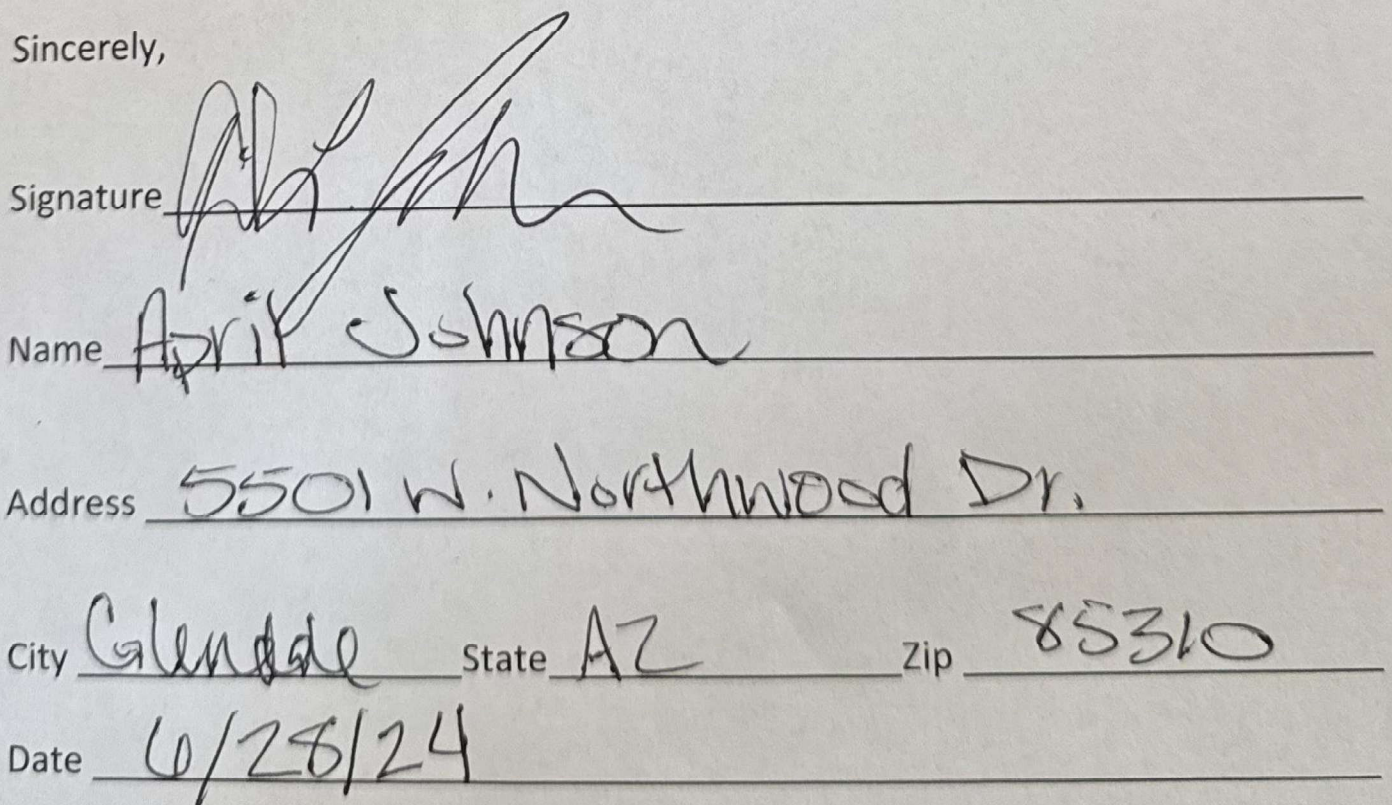 Sincerely,
Signature
Name April Johnson
Address 5501 W. Northwood Dr.
City Glendale State AZ Zip 85310
Date 6/28/24